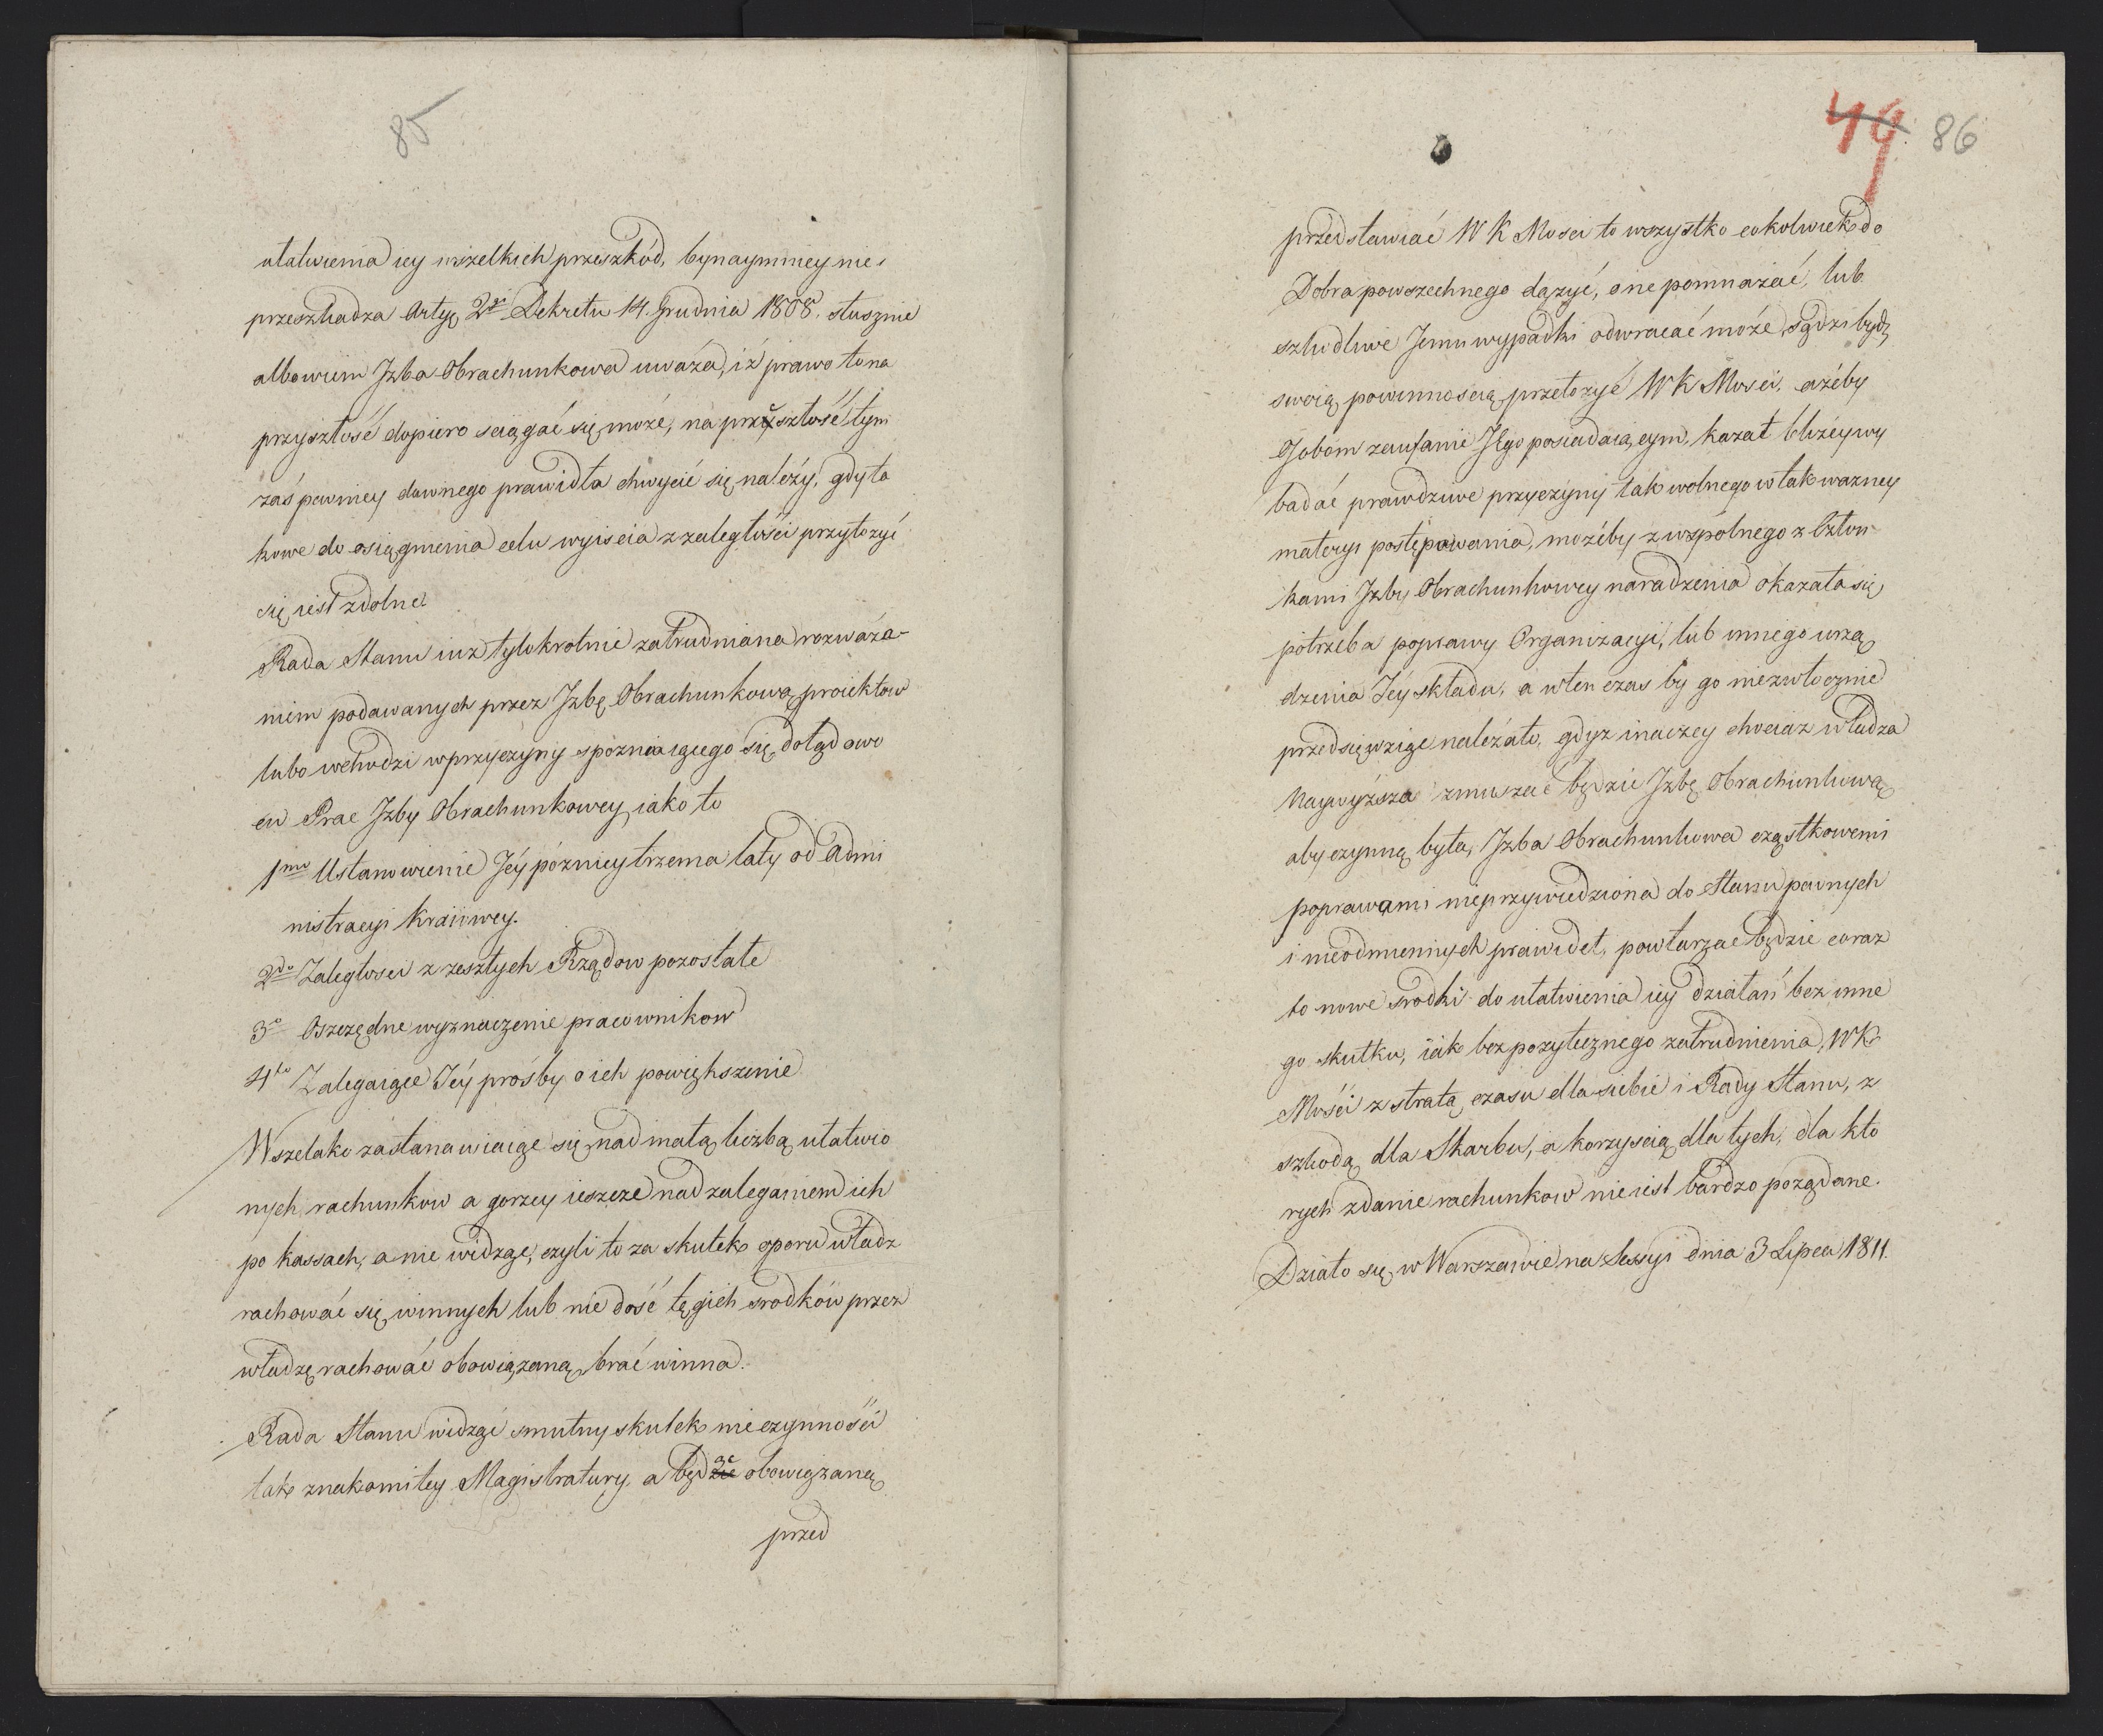 85
ułatwienia iey wszelkich przeszkód, bynaymniey nie
przeszkadza Arty. 2go Dekretu 14. Grudnia 1808. słusznie
albowiem Izba Obrachunkowa uważa, iż prawo to na
przyszłość dopiero sciągać się może, na przeszłość tym
zaś pewniey dawnego prawidła chwycić się należy, gdy ta
kowe do osiągnienia celu wyiscia z zaległości przyłożyć
się iest zdolne.
Rada Stanu iuż tylokrotnie zatrudniana rozwáża-
niem podawanych przez Izbę Obrachunkową proiektow
lubo wchodzi w przyczyny spozniaiącego się dotąd owo
cu Prac Izby Obrachunkowey, iako to
1mo Ustanowienie Jéy pózniey trzema laty od Admi
nistracyi kraiowey.
2do Zaległosci z zeszłych Rządow pozostałe
3o Oszczędne wyznaczenie pracowników
4to Zalegaiące Jéy prośby o ich powiększenie
Wszelako zastanawiaiąc się nad małą liczbą ułatwio
nych rachunkow a gorzey ieszcze nad zaleganiem ich
po kassach, a nie widząc, czyli to za skutek oporu władz
rachować się winnych lub nie dość tęgich srodków przez
władzę rachować obowiązaną, brać winna.
Rada Stanu widząc smutny skutek nieczynności
tak znakomitey Magistratury, a będąc obowiązaną
przed
49 86
przedstawiać W K Mosci to wszystko cokolwiek do
Dobra powszechnego dążyć, one pomnażać, lub
szkodliwe Jemu wypadki odwracać może, sądzi bydź
swoią powinnoscią przełożyć W K Mosci, ażeby
Osobom zaufanie Jego posiadaiącym, kazał bliżey wy
badać prawdziwe przyczyny tak wolnego w tak wazney
materyi postępowania, możeby z wspólnego z Człon-
kami Izby Obrachunkowey naradzenia okazała się
potrzeba poprawy Organizacyi, lub innego urzą
dzenia Jéy składu, a wten czas by go niezwłocznie
przedsięwziąc należało, gdyz inaczey chociaz władza
Naywyższa zmuszac będzie Izbę Obrachunkową
aby czynną była, Izba Obrachunkowa cząstkowemi
poprawami nieprzywiedziona do Stanu pewnych
i nieodmiennych prawideł, powtarzac będzie coraz
to nowe srodki do ułatwienia iey działań bez inne
go skutku, iak bezpożytecznego zatrudnienia, W K
Mości z stratą czasu dla siebie i Rady Stanu, z
szkodą dla Skarbu, a korzyscią dla tych, dla kto
rych zdanie rachunkow nie iest bardzo pożądane.
Działo się w Warszawie na Sessyi dnia 3 Lipca 1811.